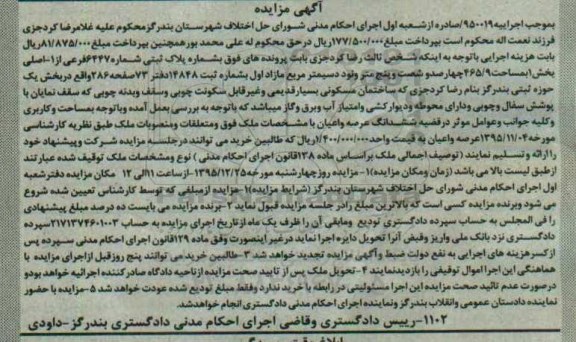 آگهی مزایده
بموجب اجراییه ۹۵۰۰۱۹/صادره از شعبه اول اجرای احکام مدنی شورای حل اختلاف شهرستان بندرگز محکوم علیه غلامرضا کردجزی
فرزند نعمت اله محکوم است بپرداخت مبلغ ۱۷۷/۵۰۰/۰۰۰ ریال در حق محکوم له علی محمد پور همچنین بپرداخت مبلغ ۸۱/۸۷۵/۰۰۰ ریال
بابت هزینه اجرایی باتوجه به اینکه شخص ثالث رضا کردجزی بابت پرونده های فوق بشماره پلاک ثبتی شماره ۶۴۴۷ فرعی از ۱-اصلی
بخش ۱ بمساحت ۴۶۵/۹ چهارصدو شصت و پنج متر ونود دسیمتر مربع مازاد اول بشماره ثبت ۱۴۸۴۸ دفتر ۷۳ صفحه ۳۸۶ واقع دربخش یک
حوزه ثبتی بندرگز بنام رضا کردجزی که ساختمان مسکونی بسیار قدیمی وغیرقابل سکونت چوبی وسقف وبدنه چوبی که سقف نمایان با
پوشش سفال وچوبی ودارای محوطه ودیوار کشی وامتیاز آب وبرق وگاز میباشد که باتوجه به بررسی بعمل آمده وباتوجه بمساحت وکاربری
وکلیه جوانب وعوامل موثر در قضیه ششدانگ عرصه واعیان با مشخصات ملک فوق ومتعلقات ومنصوبات ملک طبق نظریه کارشناسی
مورخه ۱۳۹۵/۱۱/۰۴ عرصه واعیان به قیمت واحد ۱/۴۰۰/۰۰۰/۰۰۰ ریال که طالبین خرید می توانند درجلسه مزایده شرکت وپیشنهاد خود
را ارائه و تسلیم نمایند (توصیف اجمالی ملک براساس ماده ۱۳۸ قانون اجرای احکام مدنی ) نوع ومشخصات ملک توقیف شده عبارتند
ازطبق لیست بالا می باشد (زمان ومکان مزایده) ۱- مزایده روز چهارشنبه مورخه ۱۳۹۵/۱۲/۲۵-ازساعت ۱۱ الی ۱۲ مکان مزایده دفترشعبه
اول اجرای احکام مدنی شورای حل اختلاف شهرستان بندرگز (شرایط مزایده) ۱- مزایده ازمبلغی که توسط کارشناس تعیین شده شروع
می شود وبرنده مزایده کسی است که بالاترین مبلغ را در جلسه مزایده قبول نماید ۲-برنده مزایده می بایست ده درصد مبلغ پیشنهادی
را فی المجلس به حساب سپرده دادگستری تودیع ومابقی آن را ظرف یک ماه ازتاریخ اجرای مزایده به حساب ۲۱۷۱۳۷۴۶۰۱۰۰۳ سپرده
دادگستری نزد بانک ملی واریز وقبض آنرا تحویل دایره اجرا نماید در غیر اینصورت وفق ماده ۱۲۹ قانون اجرای احکام مدنی سپرده پس
از کسر هزینه های اجرایی به نفع دولت ضبط وآگهی مزایده تجدید خواهد شد ۳-طالبین خرید می توانند پنج روز قبل ازاجرای مزایده با
هماهنگی این اجرا اموال توقیفی را بازدید نمایند ۴-تحویل ملک پس از تایید صحت مزایده ازناحیه دادگاه صادر کننده اجرائیه خواهد بود و
درصورت عدم تائید صحت مزایده این اجرا مسئولیتی در رابطه با خرید ندارد وفقط مبلغ تودیع شده عودت خواهد شد ۵-مزایده با حضور
نماینده دادستان عمومی وانقلاب بندرگز ونماینده اجرای احکام مدنی دادگستری انجام خواهد شد.
۱۱۰۲-رییس دادگستری وقاضی اجرای احکام مدنی دادگستری بندرگز-داودی